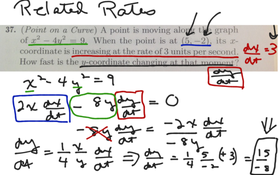 Related Rates
37. (Point on a Curve) A point is moving along the graph
of x² − 4y² = 9. When the point is at (5, −2), its x-
coordinate is increasing at the rate of 3 units per second.
How fast is the y-coordinate changing at that moment?
dx/dt = 3
dy/dt
x² − 4y² = 9
2x dx/dt − 8y dy/dt = 0
−8y dy/dt = −2x dx/dt / −8y
dy/dt = 1/4 x/y dx/dt ⇒ dy/dt = 1/4 5/−2 (+3) = 15/−8